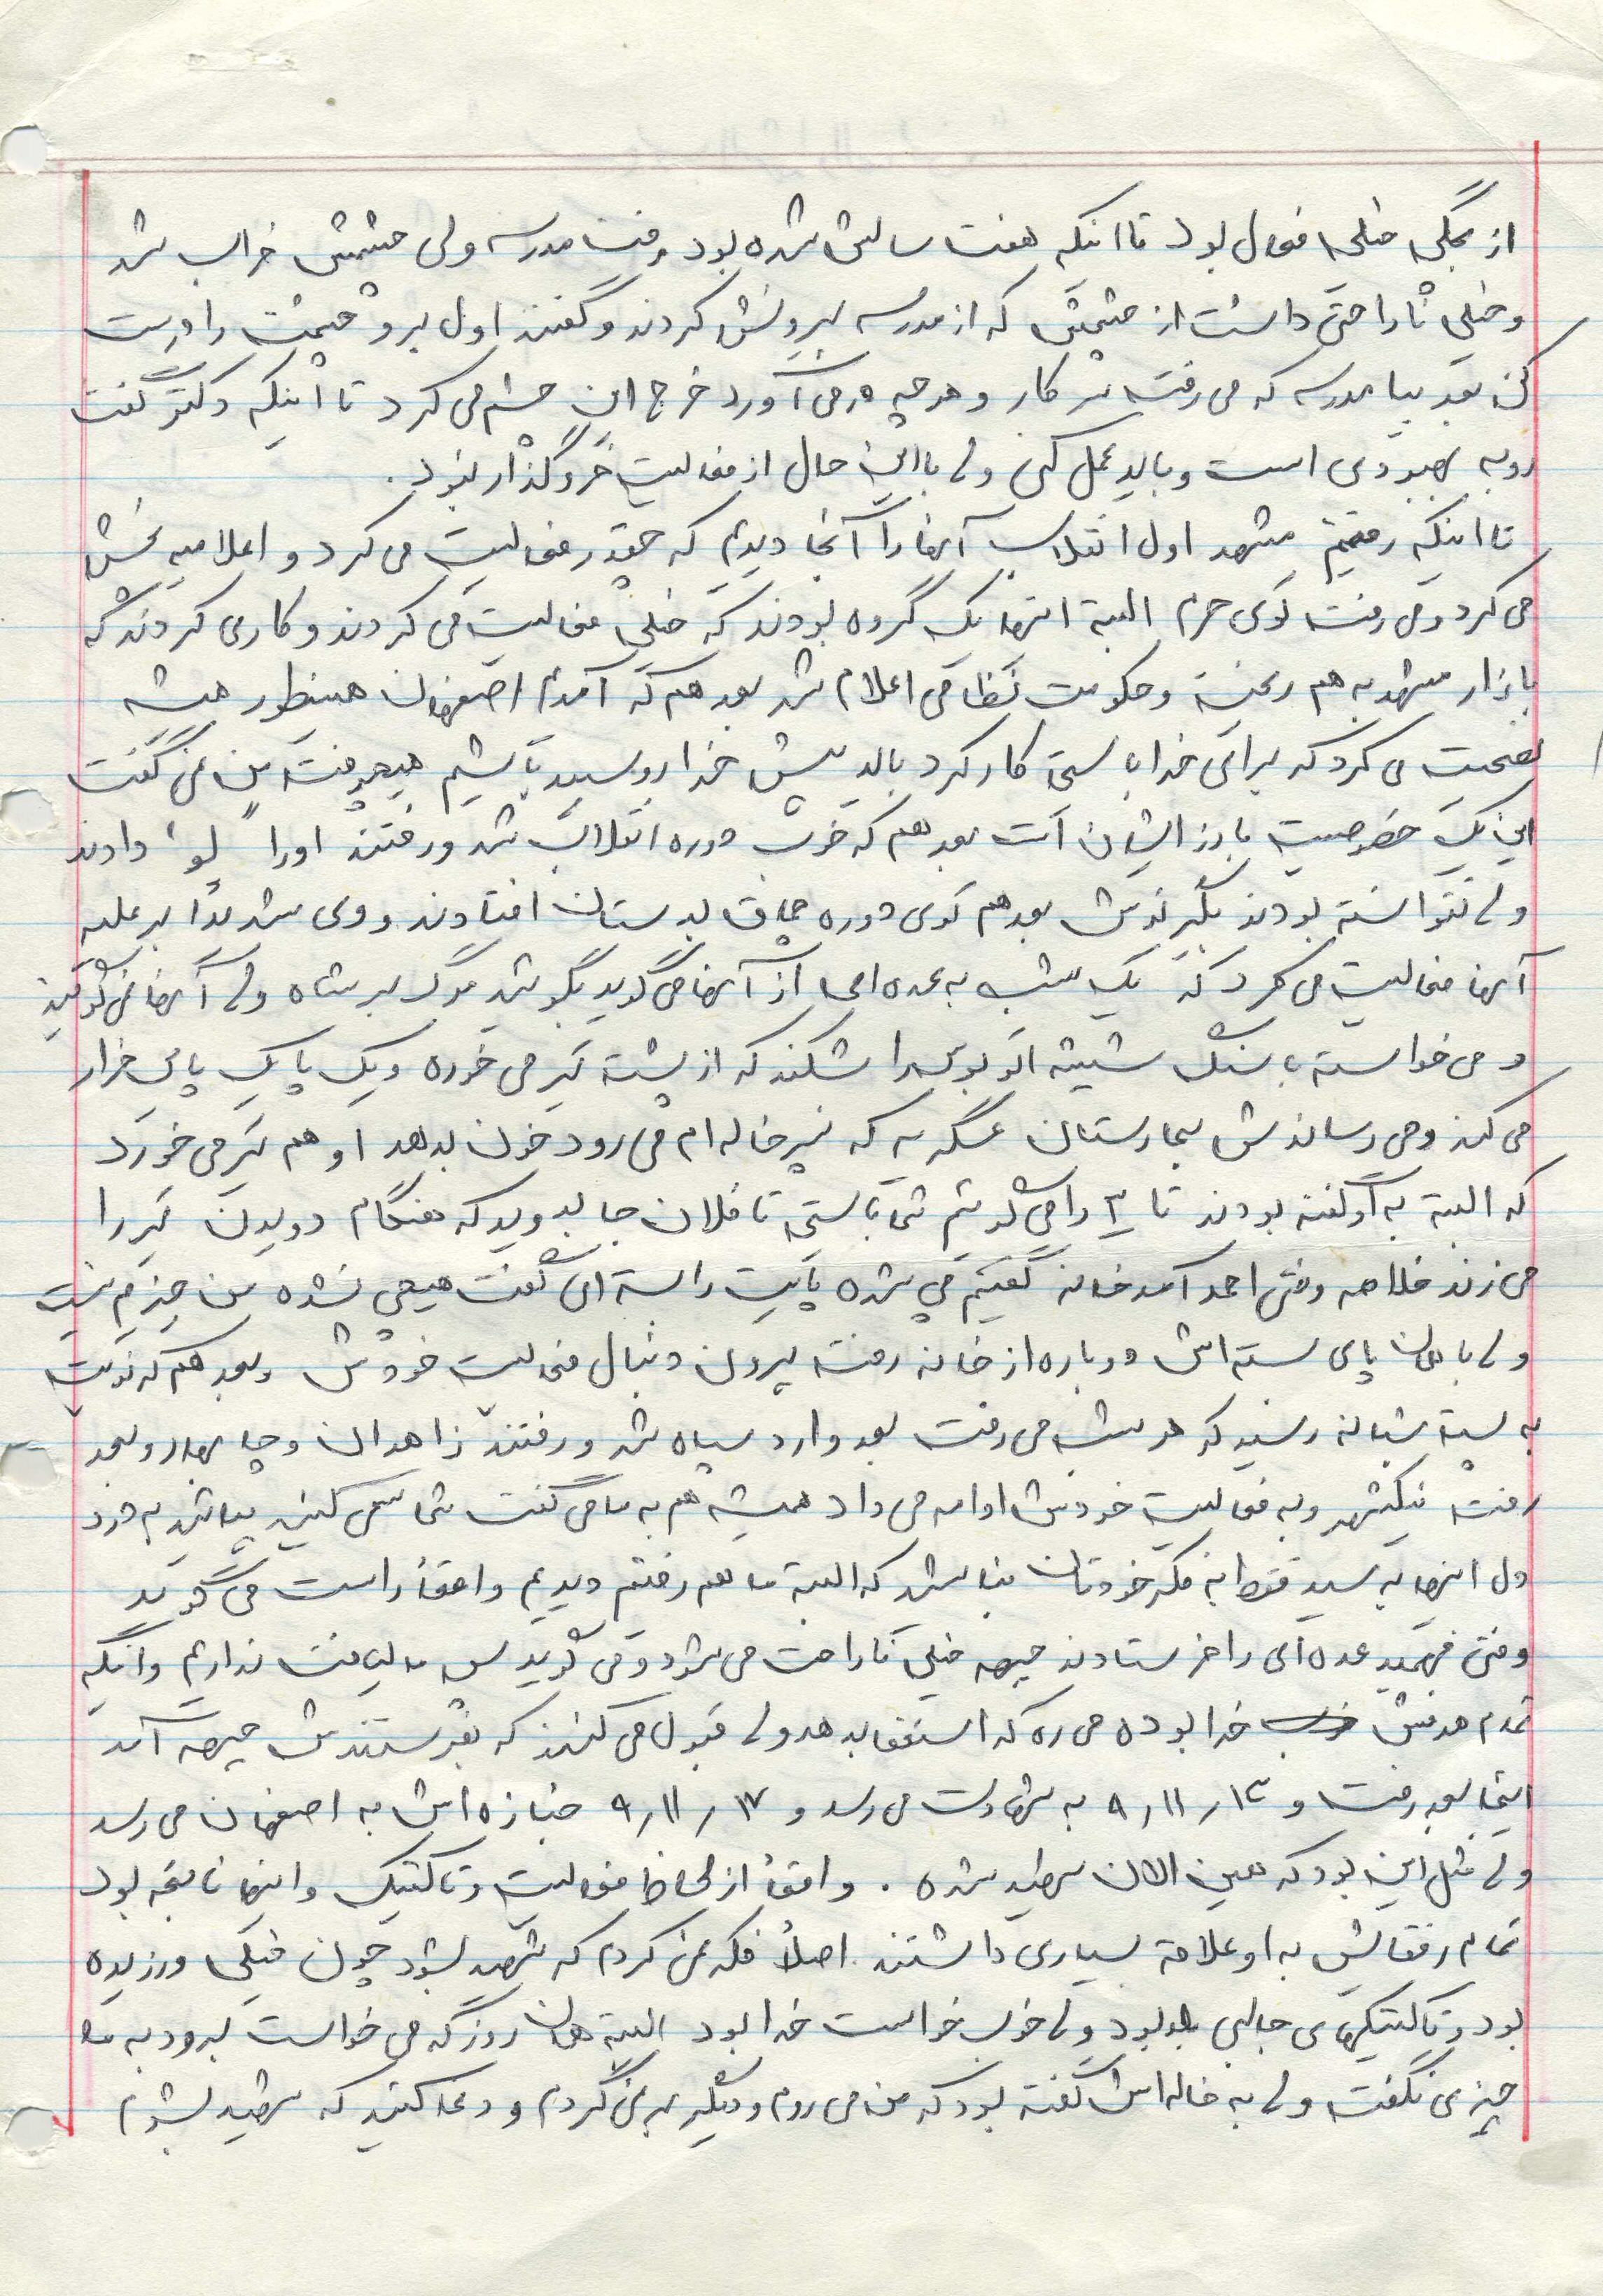 از بچگی خیلی فعال بود تا اینکه هفت سالش شده بود رفت مدرسه ولی چشمش خراب شد
و خیلی ناراحتی داشت از چشمش که از مدرسه بیرونش کردند و گفتند اول برو چشمت را درست
کن بعد بیا مدرسه که می رفت سر کار و هر چه در می آورد خرج این چشم می کرد تا اینکه دکتر گفت
رو به بهبودی است و باید عمل کنی ولی با این حال از فعالیت فروگذار نبود.
تا اینکه رفتیم مشهد اول انقلاب آنها را آنجا دیدم که چقدر فعالیت می کرد و اعلامیه پخش
می کرد و می رفت توی حرم البته اینها یک گروه بودند که خیلی فعالیت می کردند و کاری کردند که
بازار مشهد به هم ریخته و حکومت نظامی اعلام شد بعد هم که آمدم اصفهان همینطور همیشه
نصیحت می کرد که برای خدا بایستی کار کرد باید پیش خدا روسپید باشیم هیچوقت من نمی گفت
این یک خصوصیت بارز ایشان است بعد هم که خوب دوره انقلاب شد و رفتند او را "لو" دادند
ولی نتوانسته بودند بگیرندش بعد هم توی دوره چماق بدستان افتادند و وی شدیداً بر علیه
آنها فعالیت می کرد که یک شب به عده ای از آنها می گوید بگوئید مرگ بر شاه ولی آنها نمی گویند
و می خواسته با سنگ شیشه اتوبوس را بشکند که از پشت تیر می خورد و یک پا یک پایی فرار
می کند و می رسانندش بیمارستان عسگریه که پسر خاله ام می رود خون بدهد او هم تیر می خورد
که البته به او گفته بودند تا ۳ را می گوئیم شما بایستی تا فلان جا بدوید که هنگام دویدن تیر را
می زند خلاصه وقتی احمد آمد خانه گفتیم چی شده پایت را بسته ای گفت هیچی نشده من چیزم نیست
ولی با همان پای بسته اش دوباره از خانه رفت بیرون دنبال فعالیت خودش و بعد هم که نوبت
به پست شبانه رسید که هر شب می رفت بعد وارد سپاه شد و رفتند زاهدان و چابهار و بعد
رفت نیکشهر و به فعالیت خودش ادامه می داد همیشه هم به ما می گفت شما سعی کنید بیائید به درد
دل اینها برسید فقط به فکر خودتان نباشید که البته ما هم رفتم دیدیم واقعاً راست می گوید
وقتی فهمید عده ای را فرستادند جبهه خیلی ناراحت می شود و می گوید پس ما لیاقت نداریم و آنکه
تمام هدفش خدا بوده می ره که استعفا بدهد ولی قبول می کنند که بفرستندش جبهه آمد
اینجا بعد رفت و ۱۳ر۱۱ر۹ به شهادت می رسد و ۱۷ر۱۱ر۹ جنازه اش به اصفهان می رسد
ولی مثل این بود که همین الان شهید شده . واقعاً از لحاظ فعالیت و تاکتیک و اینها نابغه بود
تمام رفقایش به او علاقه بسیاری داشتند. اصلاً فکر نمی کردم که شهید بشود چون خیلی ورزیده
بود و تاکتیکهای جالبی بلد بود ولی خوب خواست خدا بود البته همان روز که می خواست برود به ما
چیزی نگفت ولی به خاله اش گفته بود که من می روم و دیگر بر نمی گردم و دعا کنید که شهید بشوم